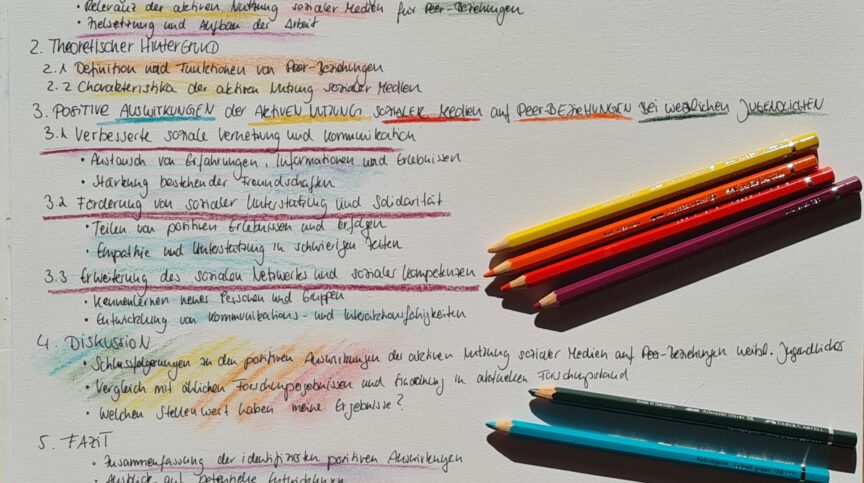 • Relevanz der aktiven Nutzung sozialer Medien für Peer-Beziehungen
• Zielsetzung und Aufbau der Arbeit
2. Theoretischer Hintergrund
2.1 Definition und Funktionen von Peer-Beziehungen
2.2 Charakteristika der aktiven Nutzung sozialer Medien
3. POSITIVE AUSWIRKUNGEN der AKTIVEN NUTZUNG SOZIALER MEDIEN auf PEER-BEZIEHUNGEN BEI WEIBLICHEN JUGENDLICHEN
3.1 Verbesserte soziale Vernetzung und Kommunikation
• Austausch von Erfahrungen, Informationen und Erlebnissen
• Stärkung bestehender Freundschaften
3.2 Förderung von sozialer Unterstützung und Solidarität
• Teilen von positiven Erlebnissen und Erfolgen
• Empathie und Unterstützung in schwierigen Zeiten
3.3 Erweiterung des sozialen Netzwerks und sozialer Kompetenzen
• Kennenlernen neuer Personen und Gruppen
• Entwicklung von Kommunikations- und Interaktionsfähigkeiten
4. DISKUSSION
• Schlussfolgerungen zu den positiven Auswirkungen der aktiven Nutzung sozialer Medien auf Peer-Beziehungen weibl. Jugendlicher
• Vergleich mit ähnlichen Forschungsergebnissen und Einordnung in aktuellen Forschungsstand
• Welchen Stellenwert haben meine Ergebnisse?
5. FAZIT
• Zusammenfassung der identifizierten positiven Auswirkungen
• Ausblick auf potenzielle Entwicklungen
FABER-CASTELL